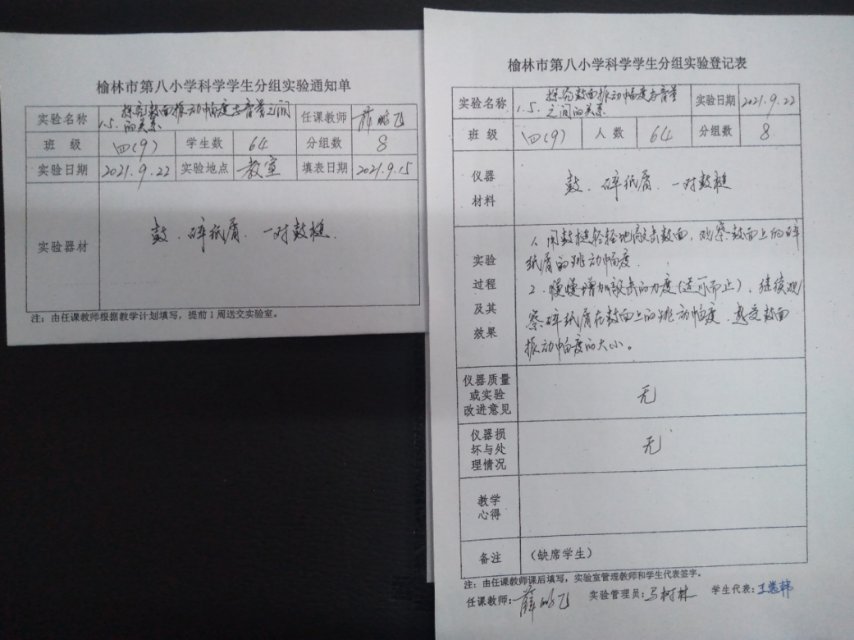 榆林市第八小学科学学生分组实验通知单
实验名称 1.5. 探究鼓面振动幅度与音量之间的关系 任课教师 薛鹏飞
班 级 四(9) 学生数 64 分组数 8
实验日期 2021.9.22 实验地点 教室 填表日期 2021.9.15
实验器材 鼓、碎纸屑、一对鼓槌
注：由任课教师根据教学计划填写，提前1周送交实验室。
榆林市第八小学科学学生分组实验登记表
实验名称 1.5. 探究鼓面振动幅度与音量之间的关系 实验日期 2021.9.22
班 级 四(9) 人 数 64 分组数 8
仪器
材料
鼓、碎纸屑、一对鼓槌
实验
过程
及其
效果
1、用鼓槌轻轻地敲击鼓面，观察鼓面上的碎
纸屑的跳动幅度。
2、慢慢增加敲击的力度(适可而止)，继续观
察碎纸屑在鼓面上的跳动幅度，感受鼓面
振动幅度的大小。
仪器质量
或实验
改进意见
无
仪器损
坏与处
理情况
无
教学
心得
备注 （缺席学生）
注：由任课教师课后填写，实验室管理教师和学生代表签字。
任课教师：薛鹏飞 实验管理员：马柯林 学生代表：王